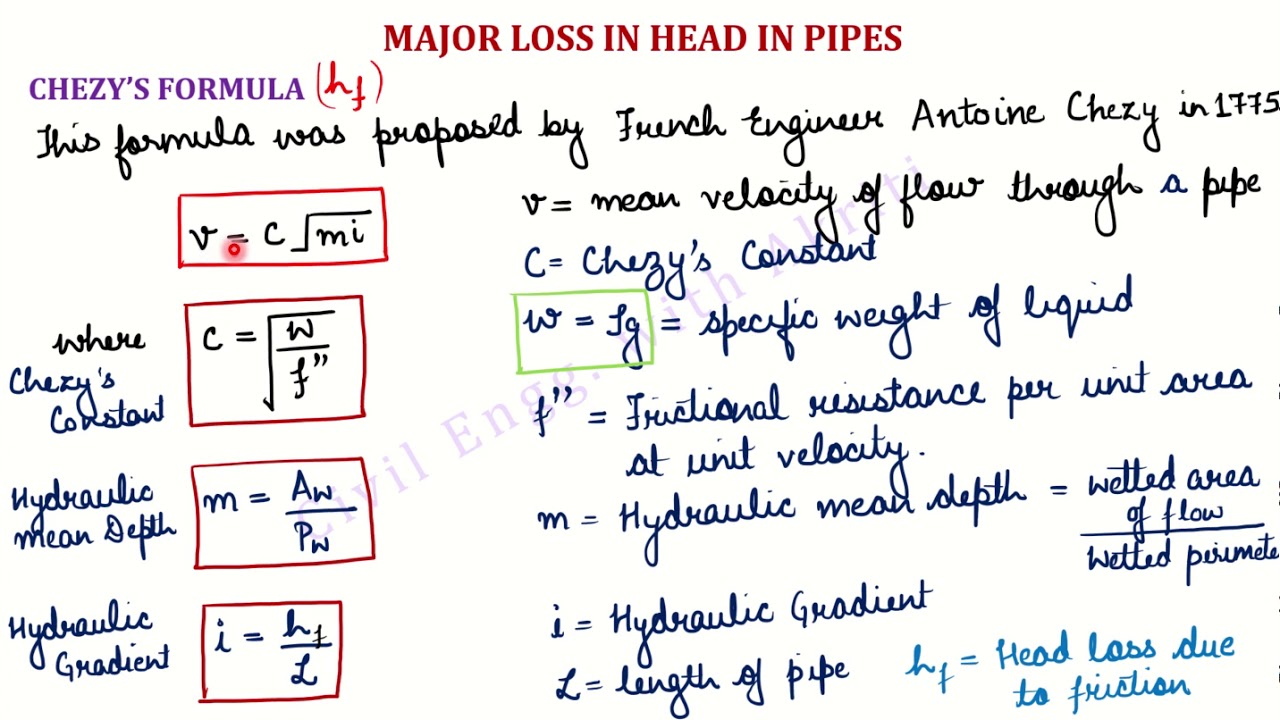 MAJOR LOSS IN HEAD IN PIPES
CHEZY'S FORMULA (hf)
This formula was proposed by French Engineer Antoine Chezy in 1775
v = C √mi
v = mean velocity of flow through a pipe
C = Chezy's Constant
where Chezy's Constant
C = √(w/f'')
w = ρg = specific weight of liquid
f'' = Frictional resistance per unit area
at unit velocity.
Hydraulic mean Depth
m = Aw/Pw
m = Hydraulic mean depth = wetted area of flow / Wetted perimete
Hydraulic Gradient
i = hf/L
i = Hydraulic Gradient
L = length of pipe
hf = Head loss due
to friction
Civil Engg. With Akriti